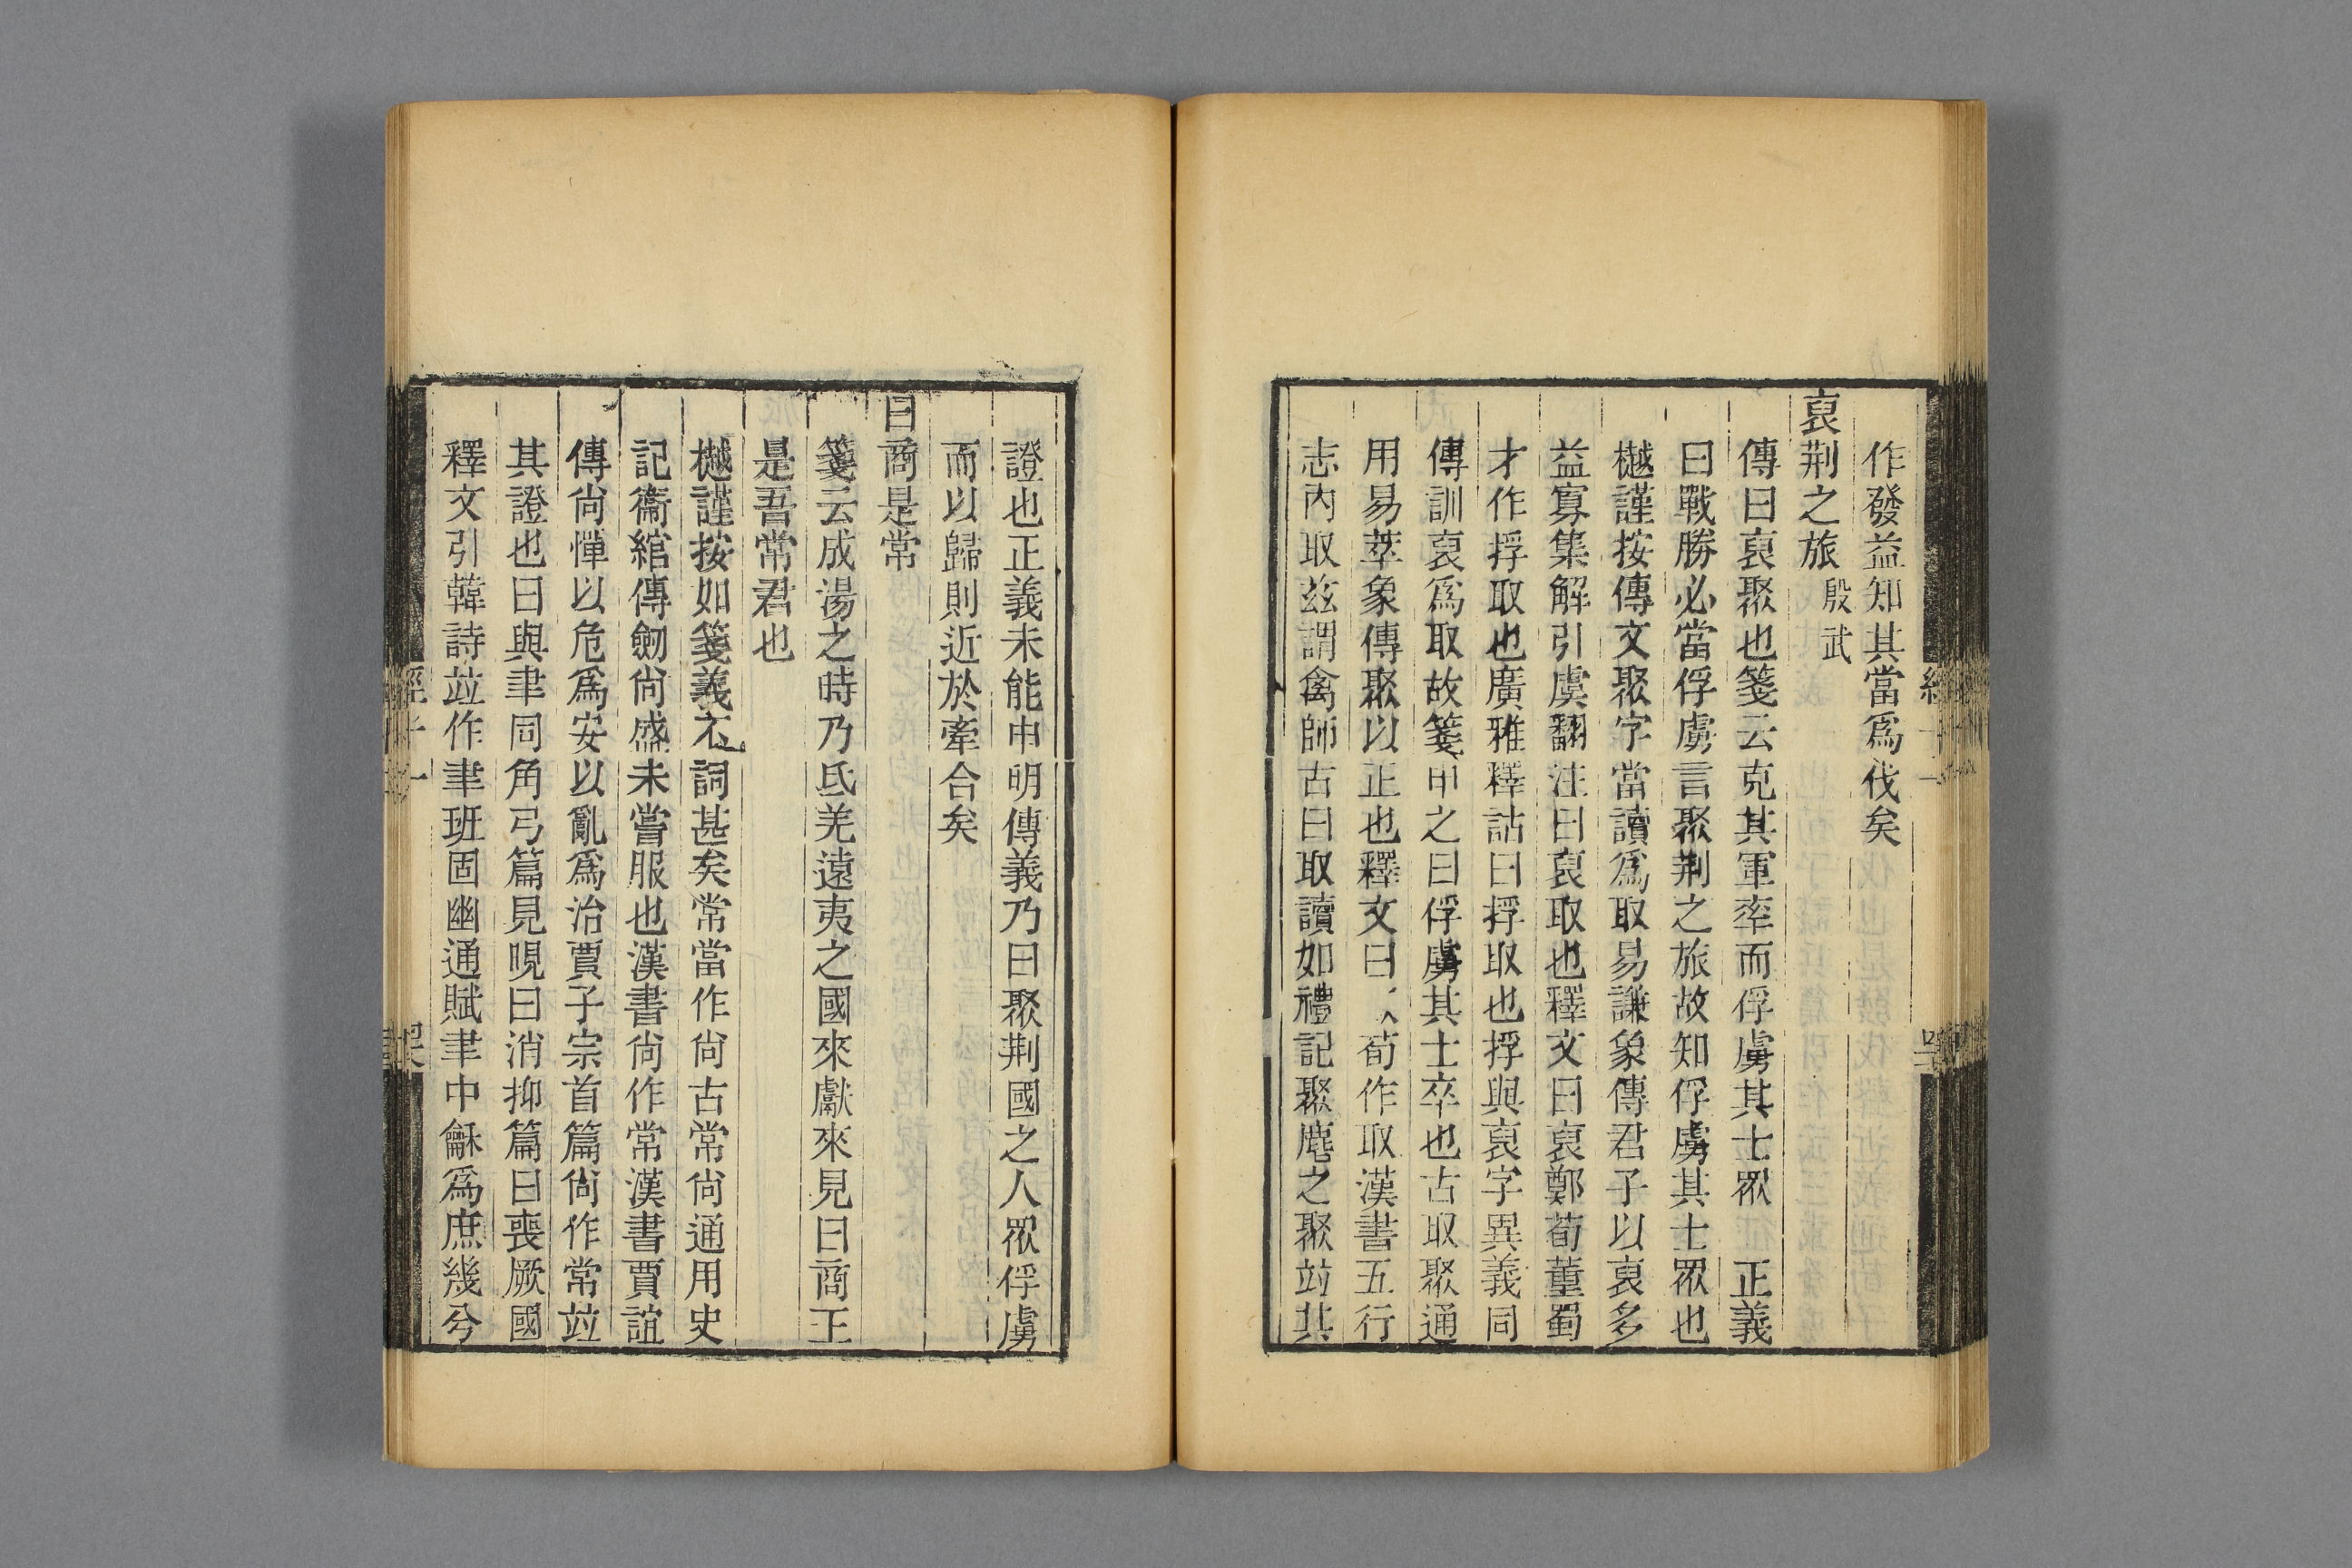 作發益知其當爲伐矣
裒荆之旅 殷武
傳曰裒聚也箋云克其軍率而俘虜其士眾 正義
曰戰勝必當俘虜言聚荆之旅故知俘虜其士眾也
樾謹按傳文聚字當讀爲取易謙象傳君子以裒多
益寡集解引虞翻注曰裒取也釋文曰裒鄭荀董蜀
才作捊取也廣雅釋詁曰捊取也捊與裒字異義同
傳訓裒爲取故箋申之曰俘虜其士卒也古取聚通
用易萃象傳聚以正也釋文曰荀作取漢書五行
志内取兹謂禽師古曰取讀如禮記聚麀之聚竝其
證也正義未能申明傳義乃曰聚荆國之人眾俘虜
而以歸則近於牽合矣
曰商是常
箋云成湯之時乃氐羌遠夷之國來獻來見曰商王
是吾常君也
樾謹按如箋義不詞甚矣常當作尙古常尙通用史
記衞綰傳劒尙盛未嘗服也漢書尙作常漢書賈誼
傳尙憚以危爲安以亂爲治賈子宗首篇尙作常竝
其證也曰與聿同角弓篇見晛曰消抑篇曰喪厥國
釋文引韓詩竝作聿班固幽通賦聿中龢爲庶幾兮